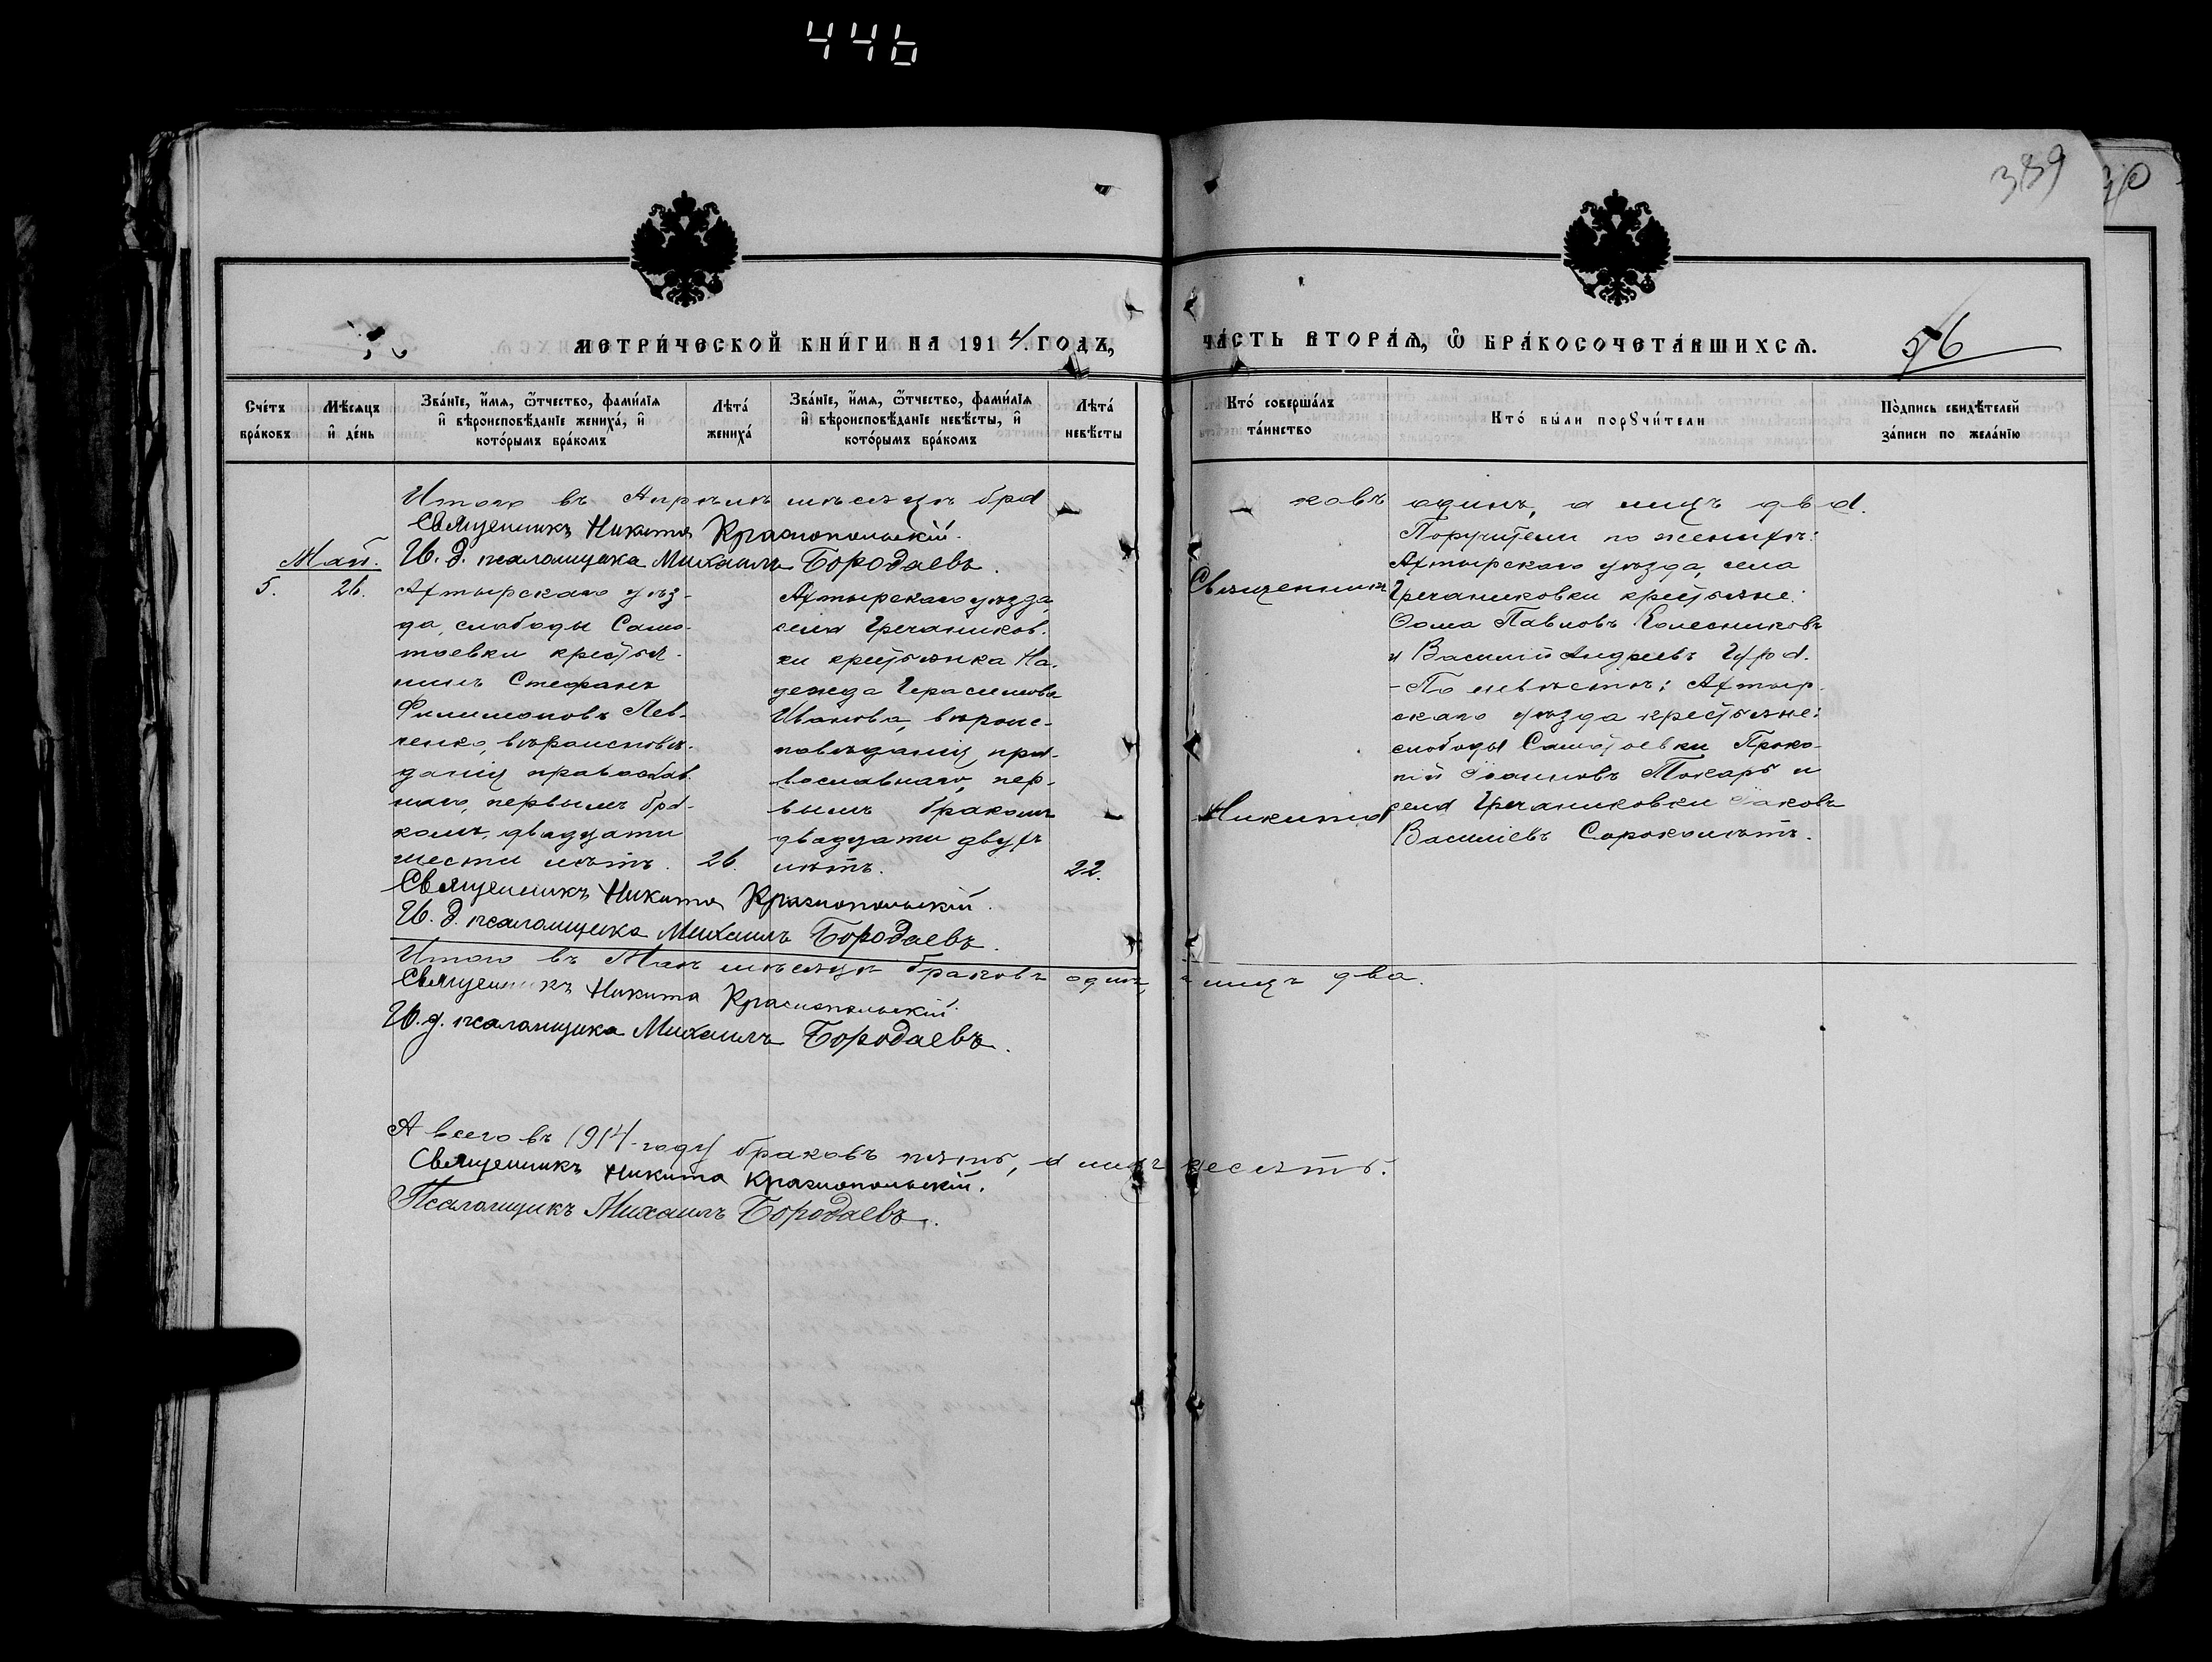 446
389
МЕТРИ́ЧЕСКОЙ КНИ́ГИ НА 1914. ГОДЪ,
ЧА́СТЬ ВТОРА́Я, Ѿ БРАКОСОЧЕТА́ВШИХСЯ.
56
Сче́тъ бра́ковъ
Мѣ́сяцъ и҆ де́нь
Зва́нїе, и҆́мя, ѻ҆́тчество, фами́лїя и҆ вѣроисповѣ́данїе жениха́, и҆ кото́рымъ бра́комъ
Лѣта́ жениха́
Зва́нїе, и҆́мя, ѻ҆́тчество, фами́лїя и҆ вѣроисповѣ́данїе невѣ́сты, и҆ кото́рымъ бра́комъ
Лѣта́ невѣ́сты
Кто́ соверша́лъ та́инство
Кто́ бы́ли порꙋчи́тели
По́дпись свидѣ́телей за́писи по жела́нїю
Итого въ Апрѣлѣ мѣсяцѣ бра
ковъ одинъ, а лицъ два.
Священникъ Никита Краснопольскій.
И. д. псаломщика Михаилъ Бородаевъ.
Май.
5.
26.
Ахтырскаго уѣз-
да, слободы Само-
тоевки крестья-
нинъ Стефанъ
Филимоновъ Лев-
ченко, вѣроисповѣ-
данія православ-
наго, первымъ бра-
комъ, двадцати
шести лѣтъ.
26.
Ахтырскаго уѣзда,
села Гречаников-
ки крестьянка На-
дежда Герасимова
Иванова, вѣроис-
повѣданія пра-
вославнаго, пер-
вымъ бракомъ
двадцати двухъ
лѣтъ.
22.
Священникъ
Никита
Поручители по женихѣ:
Ахтырскаго уѣзда, села
Гречаниковки крестьяне:
Ѳома Павловъ Колесниковъ
и Василій Андреевъ
- По невѣстѣ: Ахтыр-
скаго уѣзда крестьяне:
слободы Самотоевки Проко-
пій Іоанновъ Токарь и
села Гречаниковки Іаковъ
Василіевъ Сороколѣтъ.
Священникъ Никита Краснопольскій.
И. д. псаломщика Михаилъ Бородаевъ.
Итого въ Маѣ мѣсяцѣ браковъ одинъ, а лицъ два.
Священникъ Никита Краснопольскій.
И. д. псаломщика Михаилъ Бородаевъ.
А всего въ 1914 году браковъ пять, а лицъ десять.
Священникъ Никита Краснопольскій.
Псаломщикъ Михаилъ Бородаевъ.